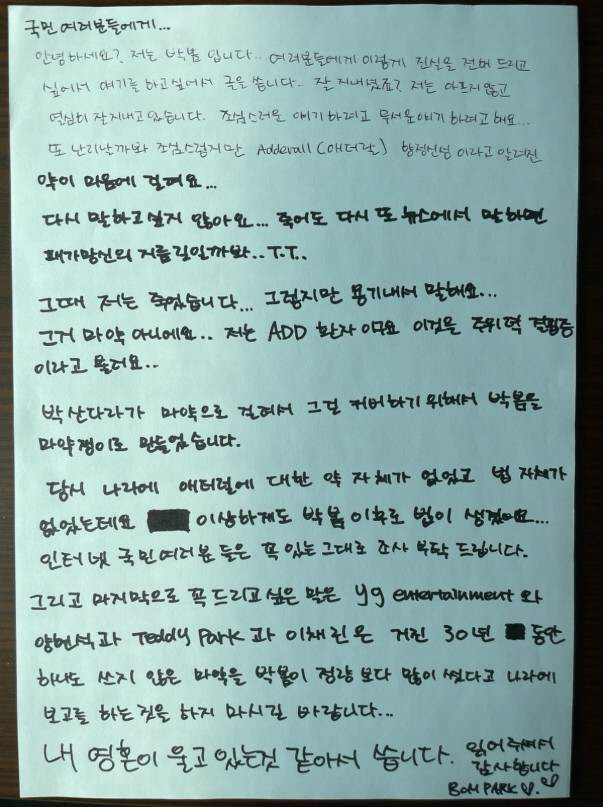 국민 여러분들에게...
안녕하세요? 저는 박봄 입니다.. 여러분들에게 이렇게 진실을 전해 드리고
싶어서 얘기를 하고싶어서 글을 씁니다.. 잘 지내셨죠? 저는 아프지않고
열심히 잘지내고있습니다. 조심스러운 얘기하려고 무서운얘기 하려고 해요...
또 난리날까봐 조심스럽지만 Adderall (애더랄) 향정신성 이라고 알려진
약이 마음에 걸려요...
다시 말하고싶지 않아요... 죽어도 다시 또 뉴스에서 말하면
패가망신의 지름길일까봐..T.T.
그때 저는 죽었습니다... 그렇지만 용기내서 말해요...
그거 마약 아니에요.. 저는 ADD 환자 이구요 이것은 주위력 결핍증
이라고 불려요..
박산다라가 마약으로 걸려서 그걸 커버하기 위해서 박봄을
마약쟁이로 만들었습니다.
당시 나라에 애터럴에 대한 약 자체가 없었고 법 자체가
없었는데요 이상하게도 박봄 이후로 법이 생겼어요...
인터넷 국민여러분들은 꼭 있는 그대로 조사 부탁 드립니다.
그리고 마지막으로 꼭드리고싶은 말은 yg entertainment 와
양현석과 Teddy Park 과 이채린은 거진 30년 동안
하나도 쓰지 않은 마약을 박봄이 정량 보다 많이 썼다고 나라에
보고를 하는것을 하지 마시길 바랍니다...
내 영혼이 울고 있는것 같아서 씁니다. 읽어주셔서
감사합니다
BOM PARK ♡.♡